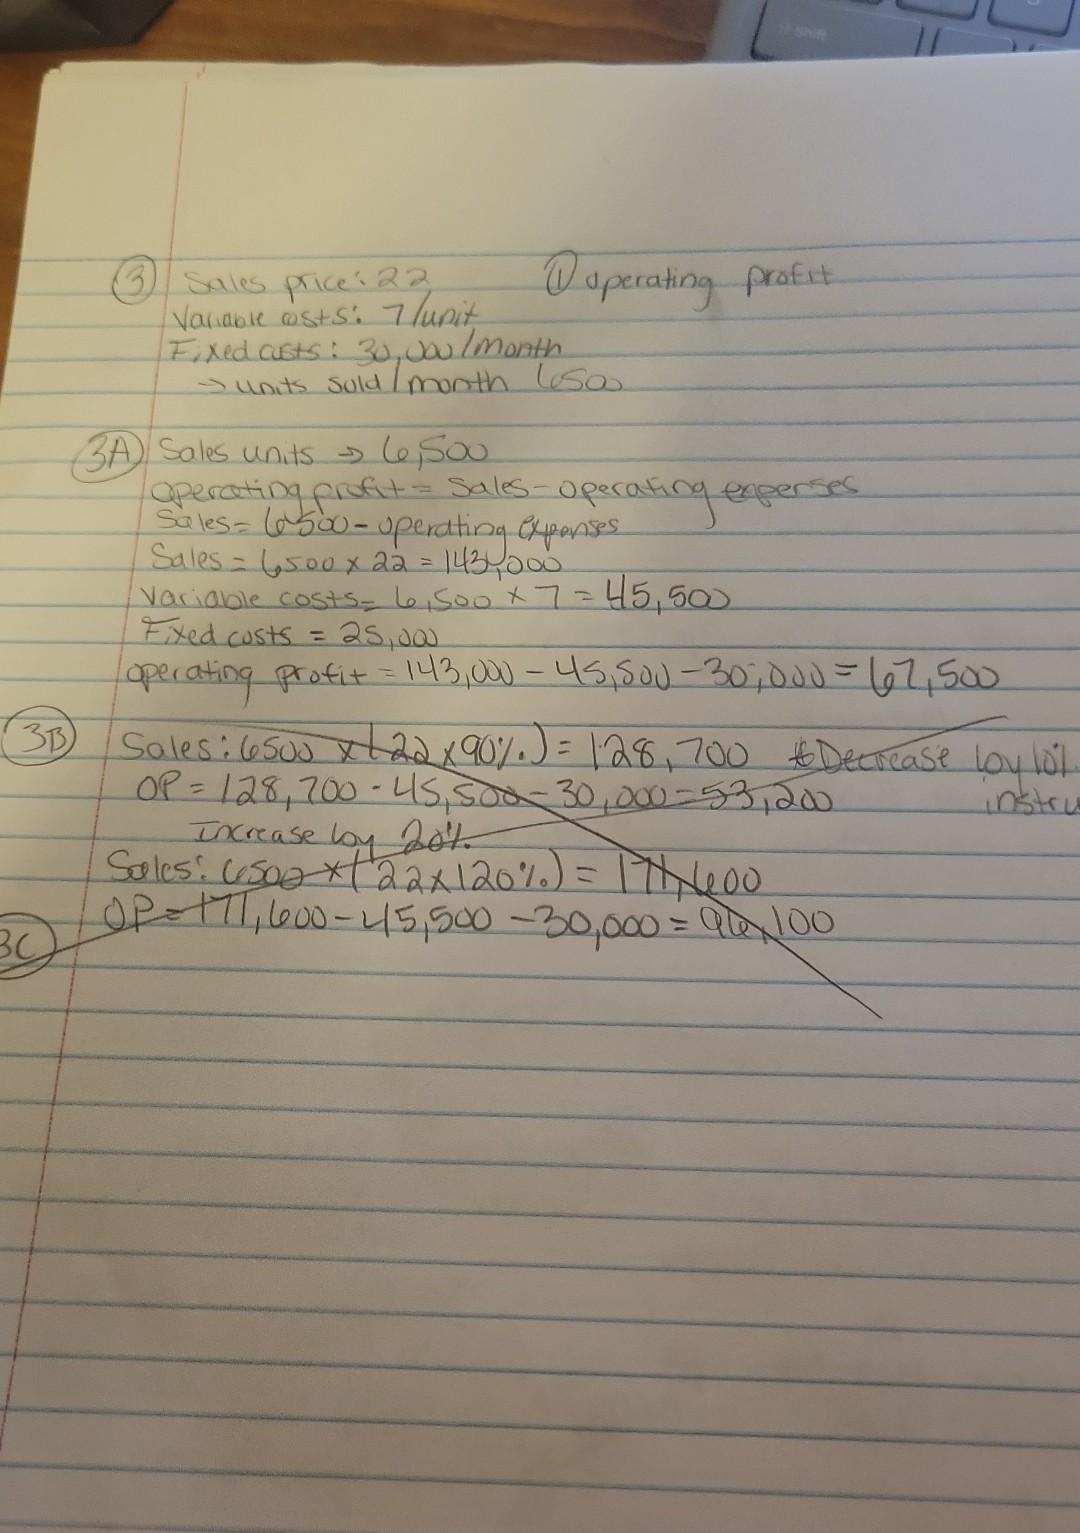 Shift
③ Sales price: 22 ① operating profit
Variable costs: 7/unit
Fixed costs: 30,000/month
→ units sold/month 6500
3A Sales units → 6,500
operating profit = Sales - operating expenses
Sales = 6500 - operating expenses
Sales = 6500 x 22 = 143,000
Variable costs = 6,500 x 7 = 45,500
Fixed costs = 25,000
operating profit = 143,000 - 45,500 - 30,000 = 67,500
3B Sales: 6500 x (22 x 90%) = 128,700 * Decrease by 10%
OP = 128,700 - 45,500 - 30,000 = 53,200 instru
Increase by 20%
Sales: 6500 * (22 x 120%) = 171,600
OP = 171,600 - 45,500 - 30,000 = 96,100
3C